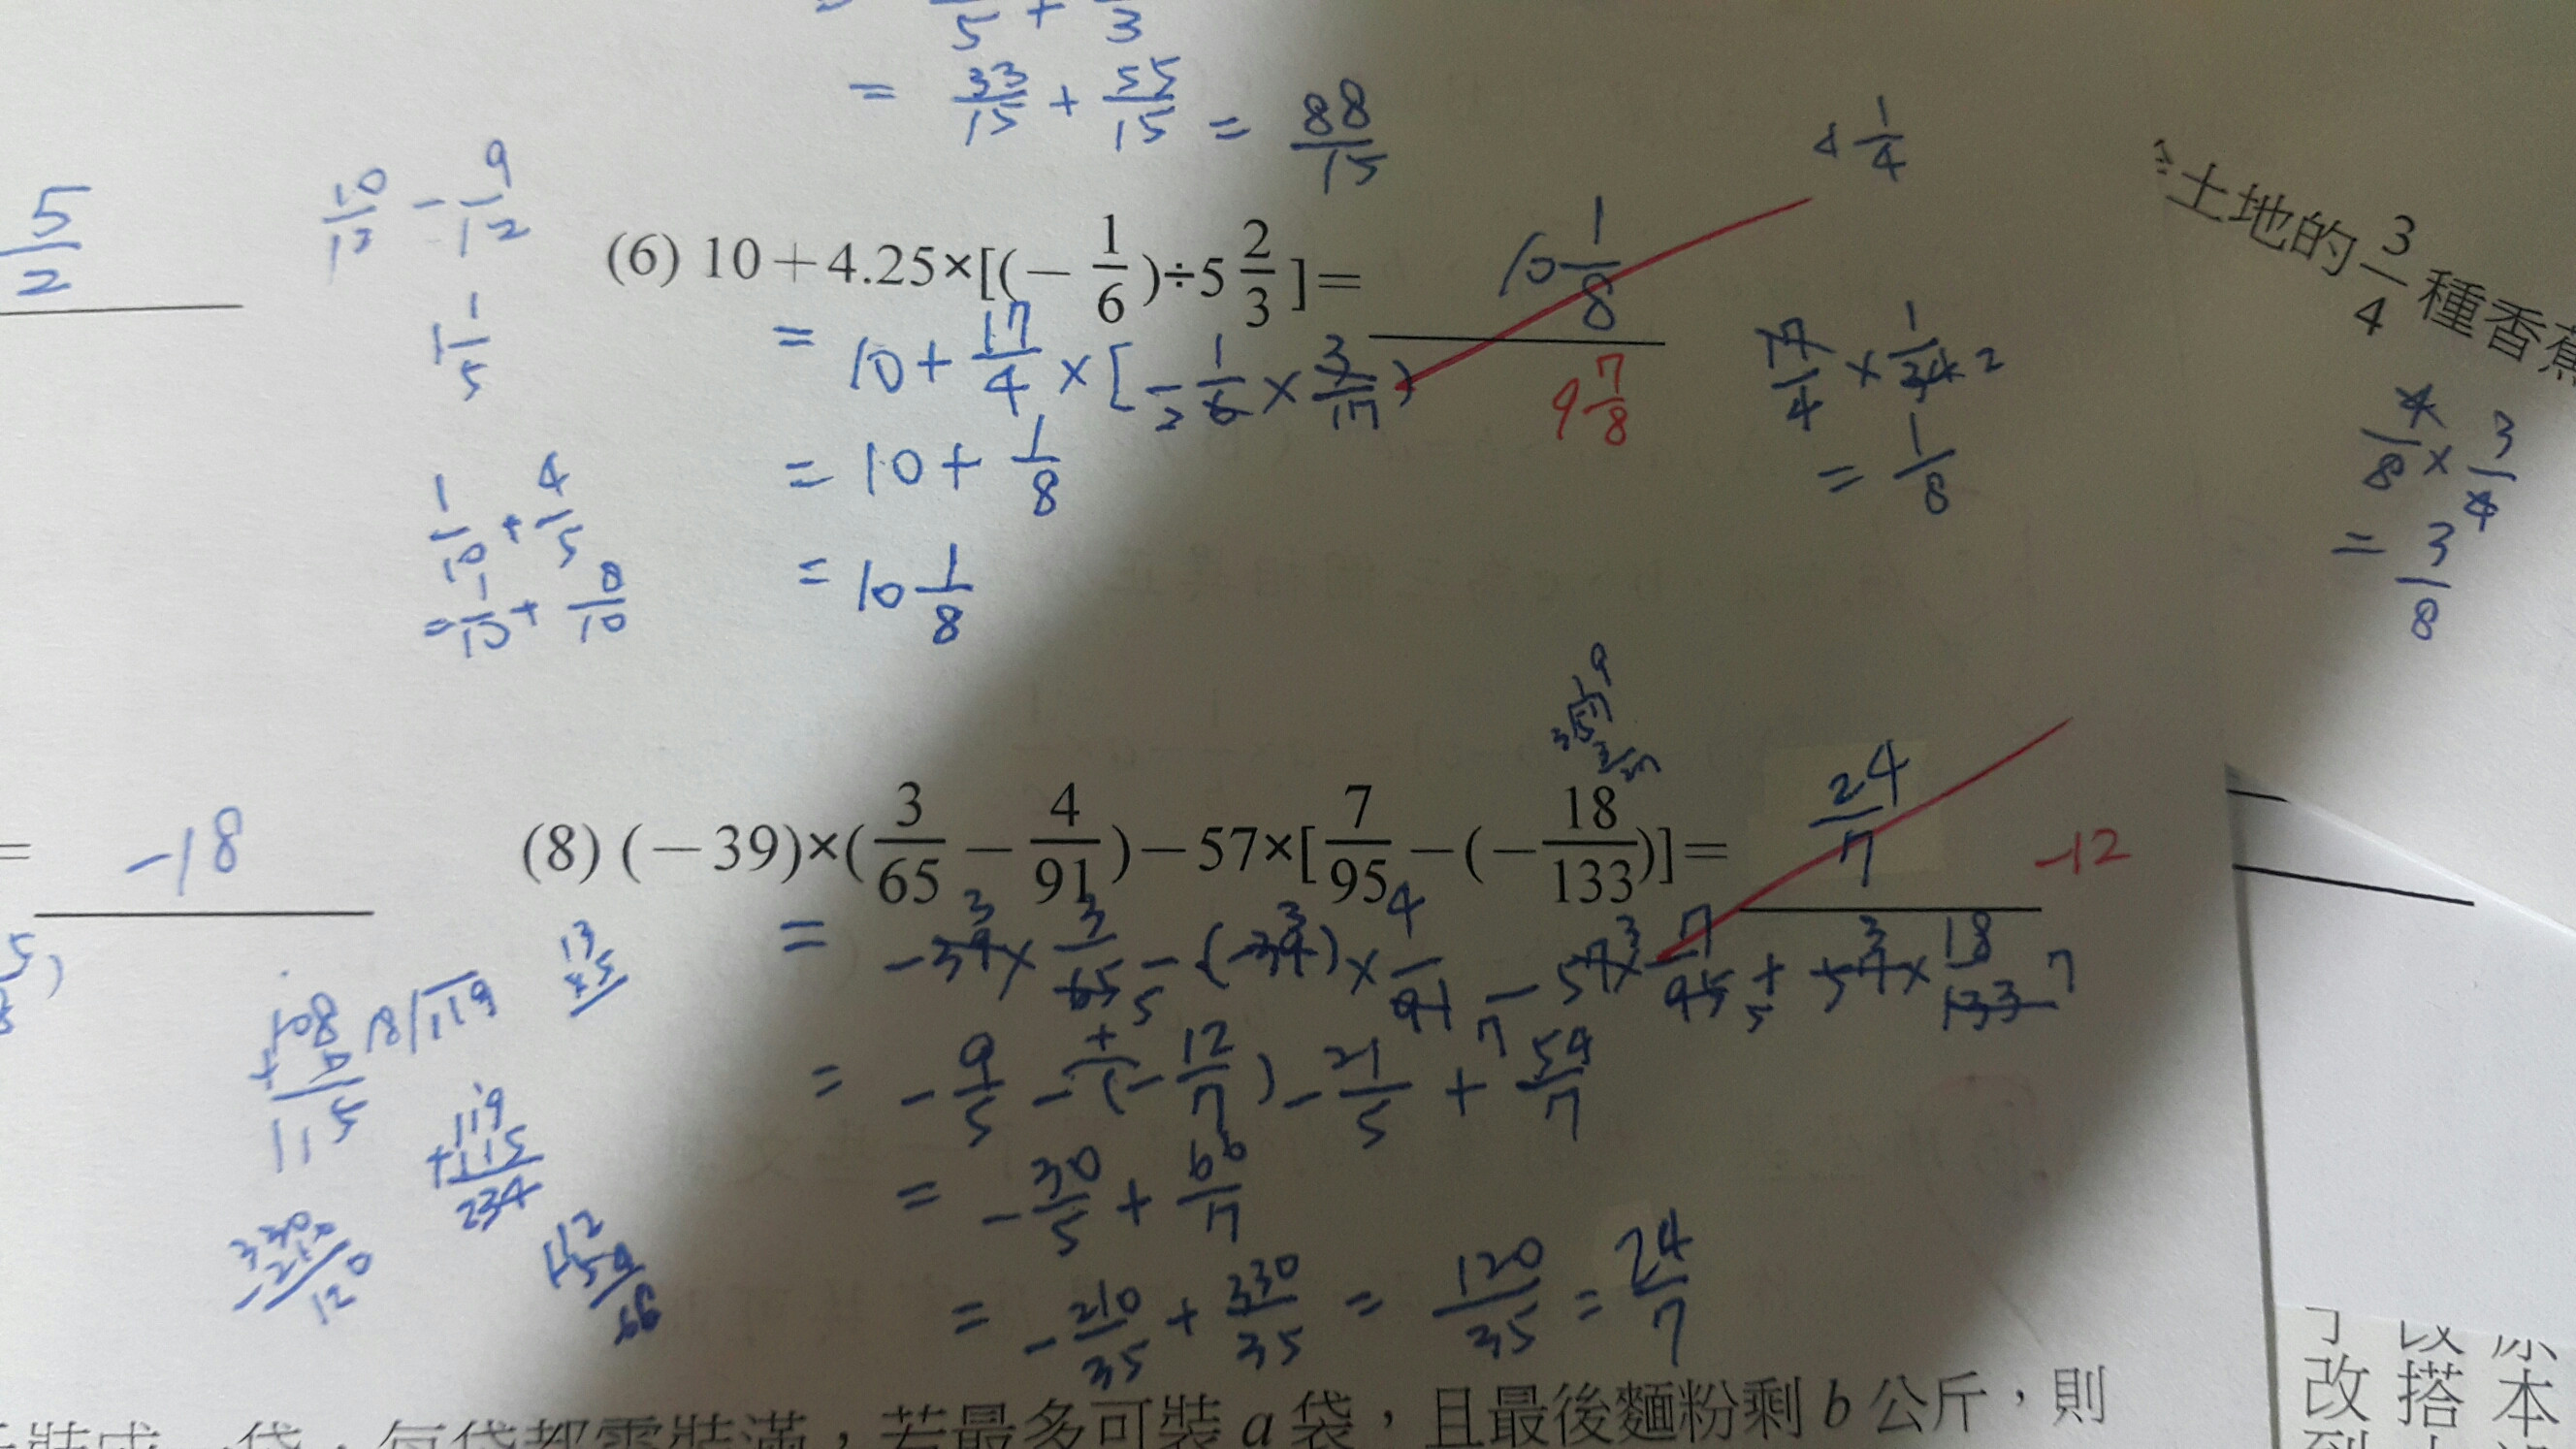 = 33/15 + 55/15 = 88/15
5/2
10/12 - 9/12
1 1/5
1/10 + 4/5
= 1/10 + 8/10
(6) 10+4.25×[(-1/6)÷5 2/3]= 10 1/8
9 7/8
= 10 + 17/4 × [-1/6 × 3/17)
= 10 + 1/8
= 10 1/8
4 1/4
17/4 × 1/34 2
= 1/8
土地的 3/4 種香蕉
4/8 × 3/4
= 3/8
= -18
(8) (-39)×(3/65-4/91)-57×[7/95-(-18/133)]= 24/7
-12
= -39 × 3/65 - (-39) × 4/91 - 57 × 7/95 + 57 × 18/133
= -9/5 - (-12/7) - 21/5 + 54/7
= -30/5 + 66/7
= -210/35 + 330/35 = 120/35 = 24/7
13
×5
115
119
+115
234
330
-210
120
12
+54
66
袋,每袋都需裝滿,若最多可裝 a 袋,且最後麵粉剩 b 公斤,則
改
搭
本